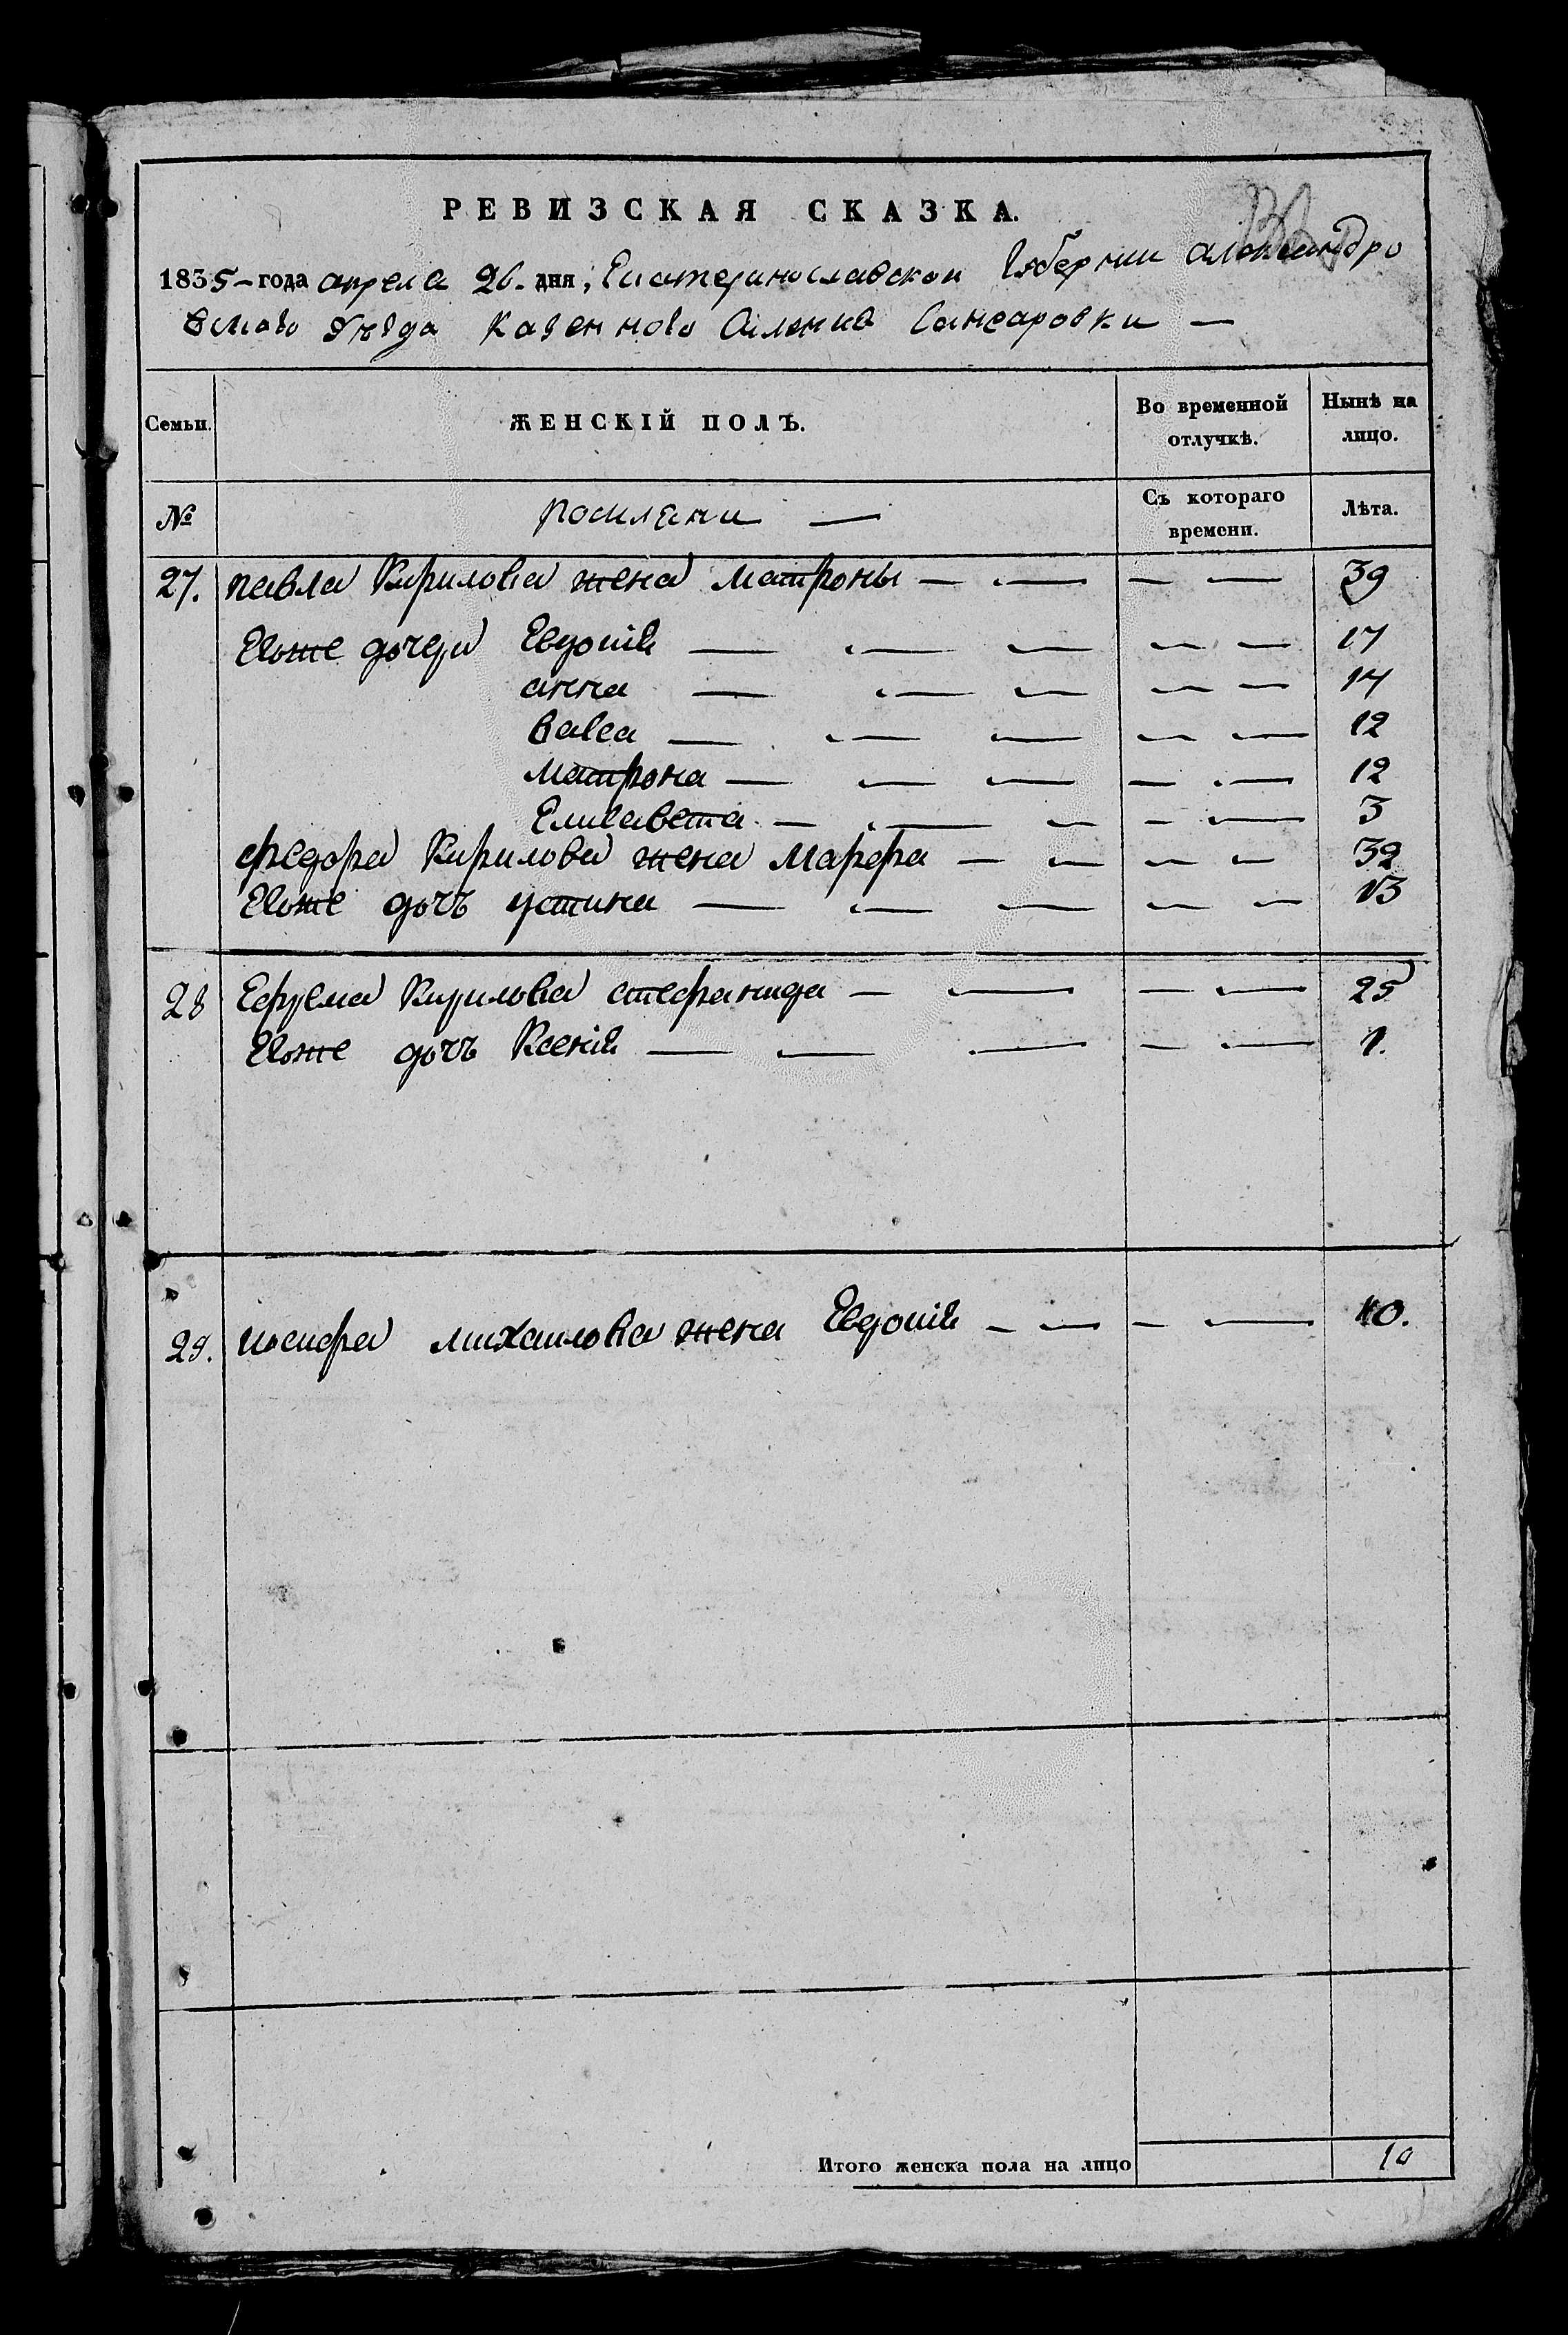 РЕВИЗСКАЯ СКАЗКА.
1835 – года апреля 26. дня, Екатеринославской Губернии Александро
вскаго Уѣзда Казенного Селения Санжаровки —
Семьи. ЖЕНСКІЙ ПОЛЪ. Во временной отлучкѣ. Нынѣ на лицо.
№ Съ котораго времени. Лѣта.
27. павла Кирилова жена матроны — — — — 39
Егоже дочери Евдокія — — — — — 17
анна — — — — — 14
Васса — — — — — 12
матрона — — — — — 12
Елисавета — — — — — 3
федора Кирилова жена марфа — — — — 32
Егоже дочъ устина — — — — — 13
28 Ефрема Кирилова стефанида — — — — 25
Егоже дочъ Ксенія — — — — — 1.
29. иосифа михаилова жена Евдокія — — — — 40.
Итого женска пола на лицо 10